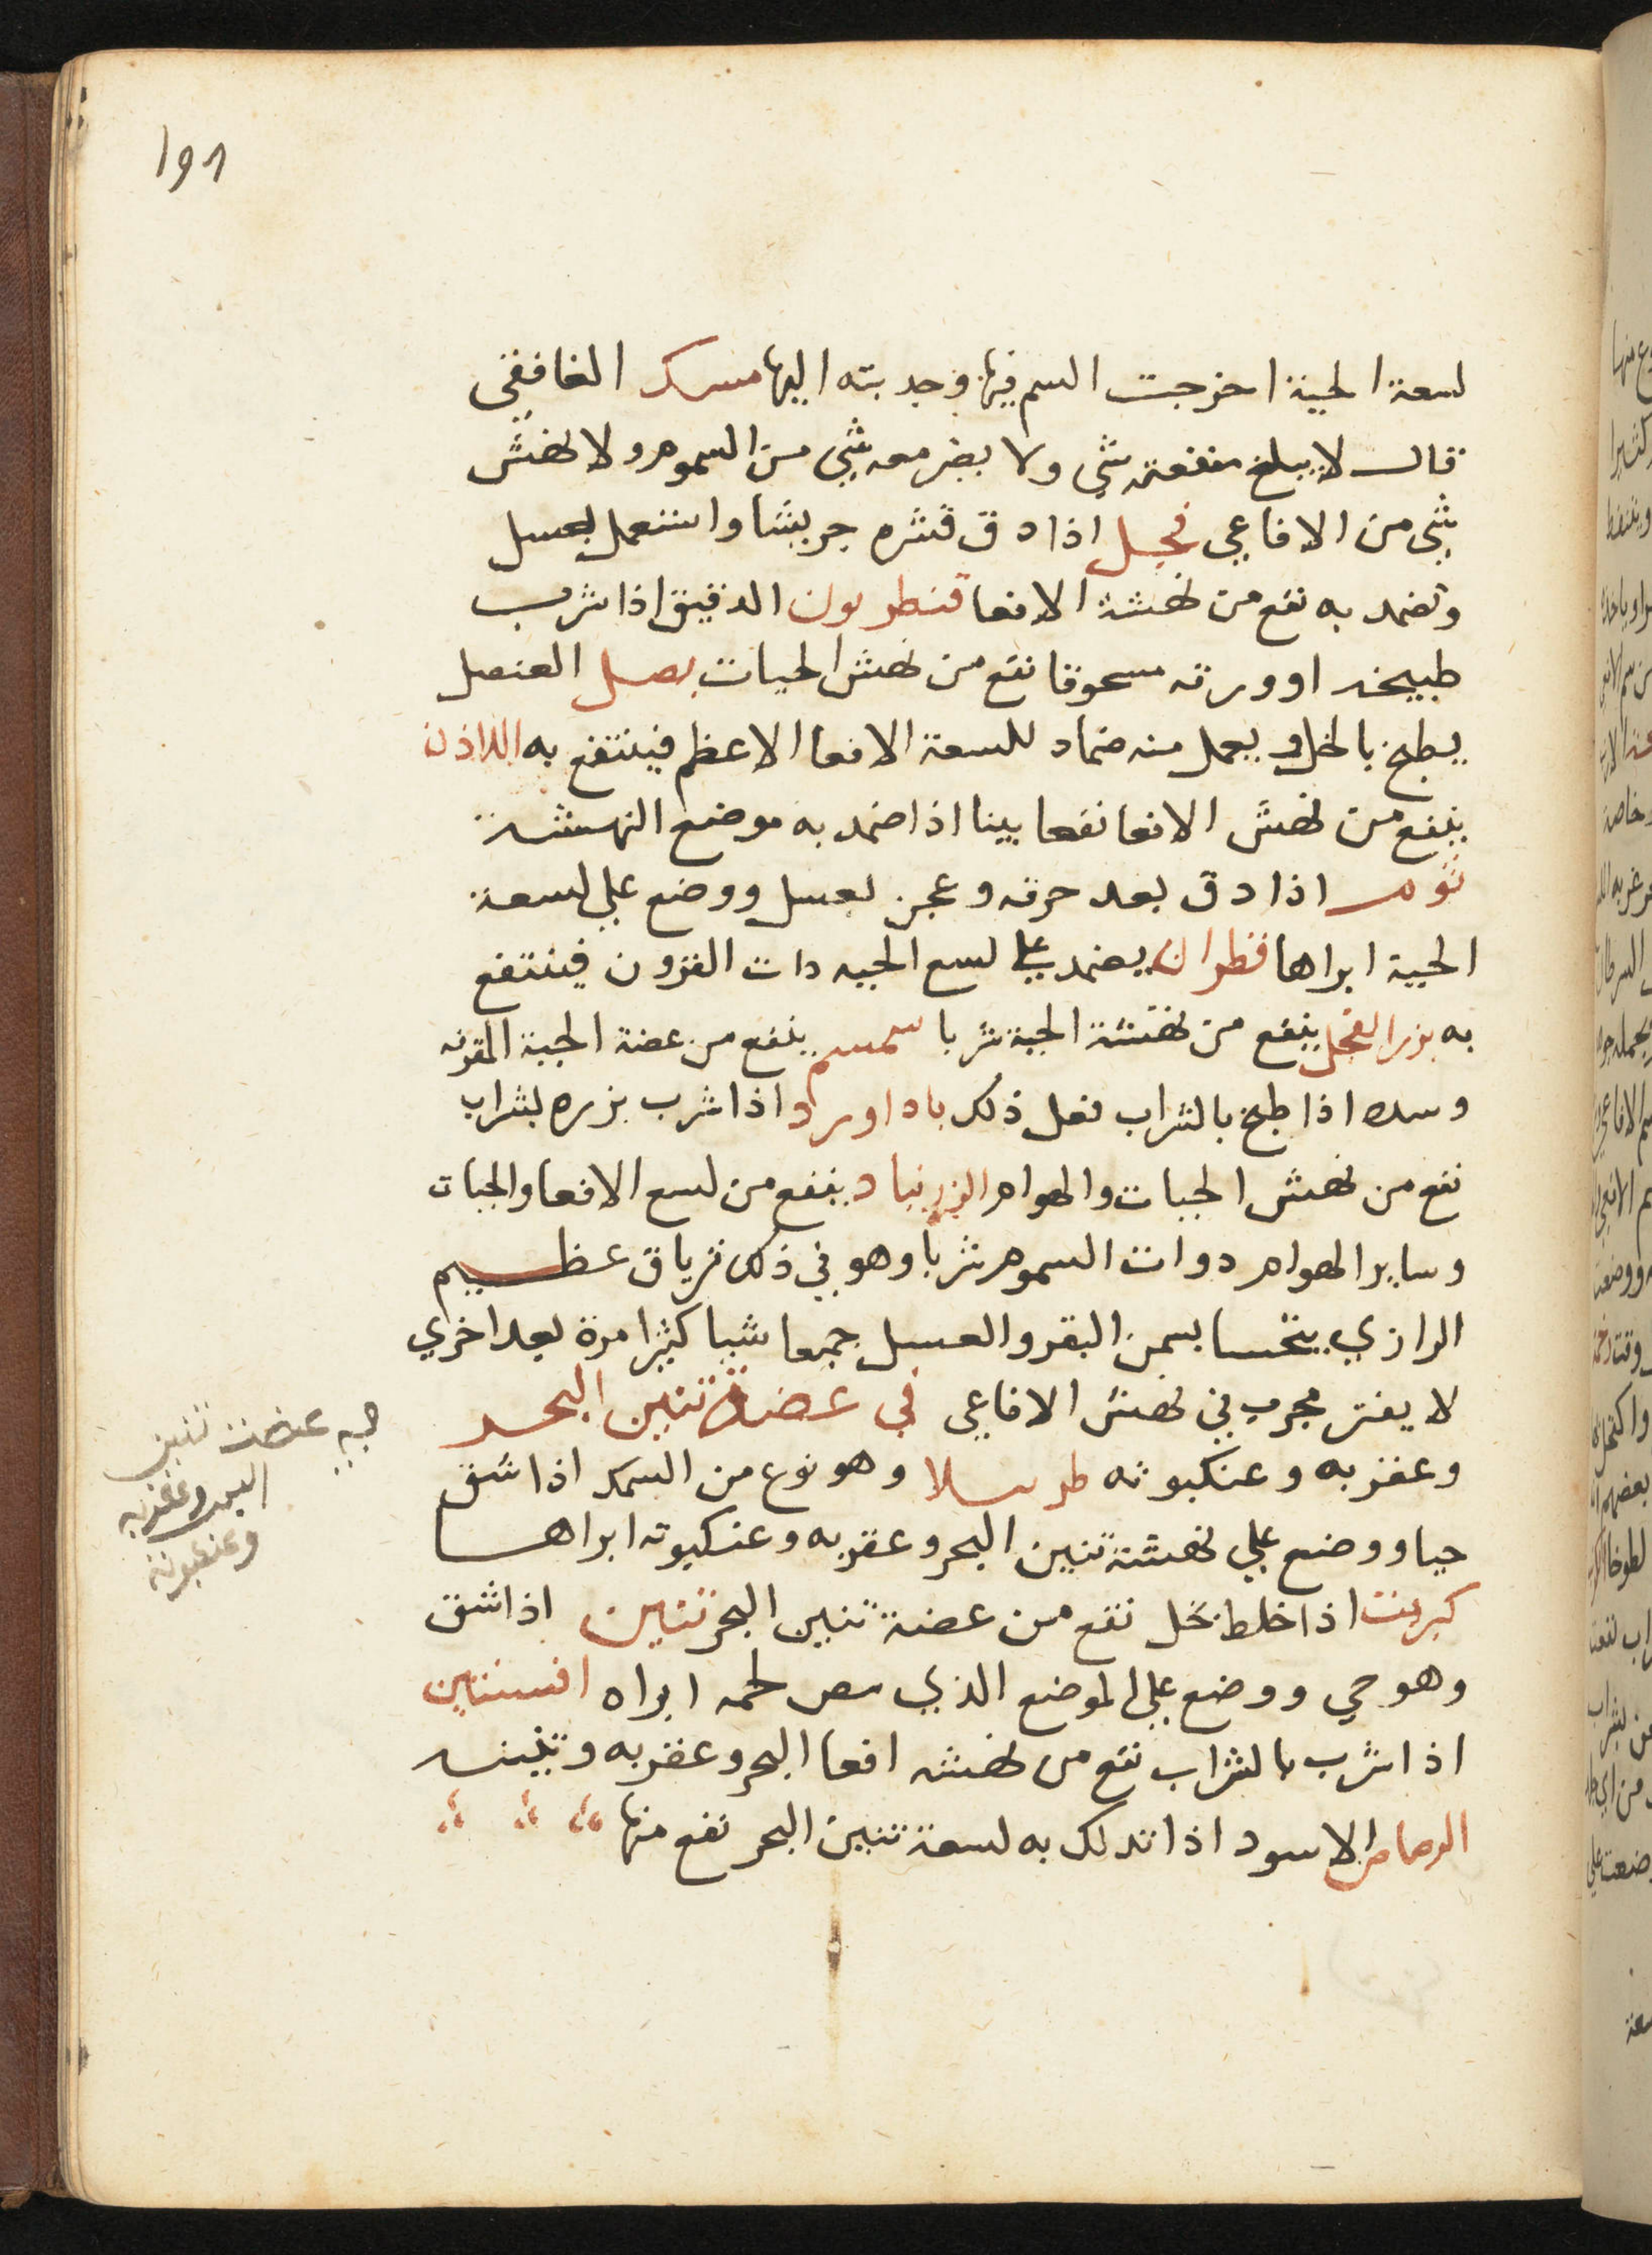 191
لسعة الحية اخرجت السم فيها وجدبته اليها مسك الغافقي
قال لا يبلغ منفعته شي ولا يضر معه شي من السموم ولا نهش
شي من الافاعي فجل اذا دق قشره جريشا واستعمل بعسل
وتضمد به نفع من نهشة الافعا قنطريون الدقيق اذا شرب
طبيخه او ورقه مسحوقا نفع من نهش الحيات بصل العنصل
يطبخ بالخل ويعمل منه ضماد للسعة الافعا الاعظم فينتفع به اللاذن
ينفع من نهش الافعا نفعا بينا اذا ضمد به موضع النهشة
ثوم اذا دق بعد حرقه وعجن بعسل ووضع علي لسعة
الحية ابراها قطران يضمد علي لسع الحيه دات القرون فينتفع
به بزر الفجل ينفع من نهشة الحية شربا سمسم ينفع من عضة الحية المقرنه
اذا طبخ بالشراب فعل ذلك باداورد اذا شرب بزره بشراب
نفع من نهش الحيات والهوام الزرنباد ينفع من لسع الافعا والحيات
وساير الهوام دوات السموم شربا وهو في ذلك ترياق عظيم
الرازي يتحسا بسمن البقر والعسل جميعا شيا كثيرا مرة بعد اخري
لا يفتر مجرب في نهش الافاعي في عضة تنين البحر
وعقربه وعنكبوته طرسلا وهو نوع من السمك اذا شق
حيا ووضع علي نهشة تنين البحر وعقربه وعنكبوته ابراها
كبريت اذا خلط بخل نفع من عضة تنين البحر تنين اذا شق
وهو حي ووضع علي الموضع الذي لحمه ابراه افسنتين
اذا شرب بالشراب نفع من نهشه افعا البحر وعقربه وتنينه
الرصاص الاسود اذا تدلك به لسعة تنين البحر نفع منها
عضت تنين
البحر وعقربه
وعنكبوته